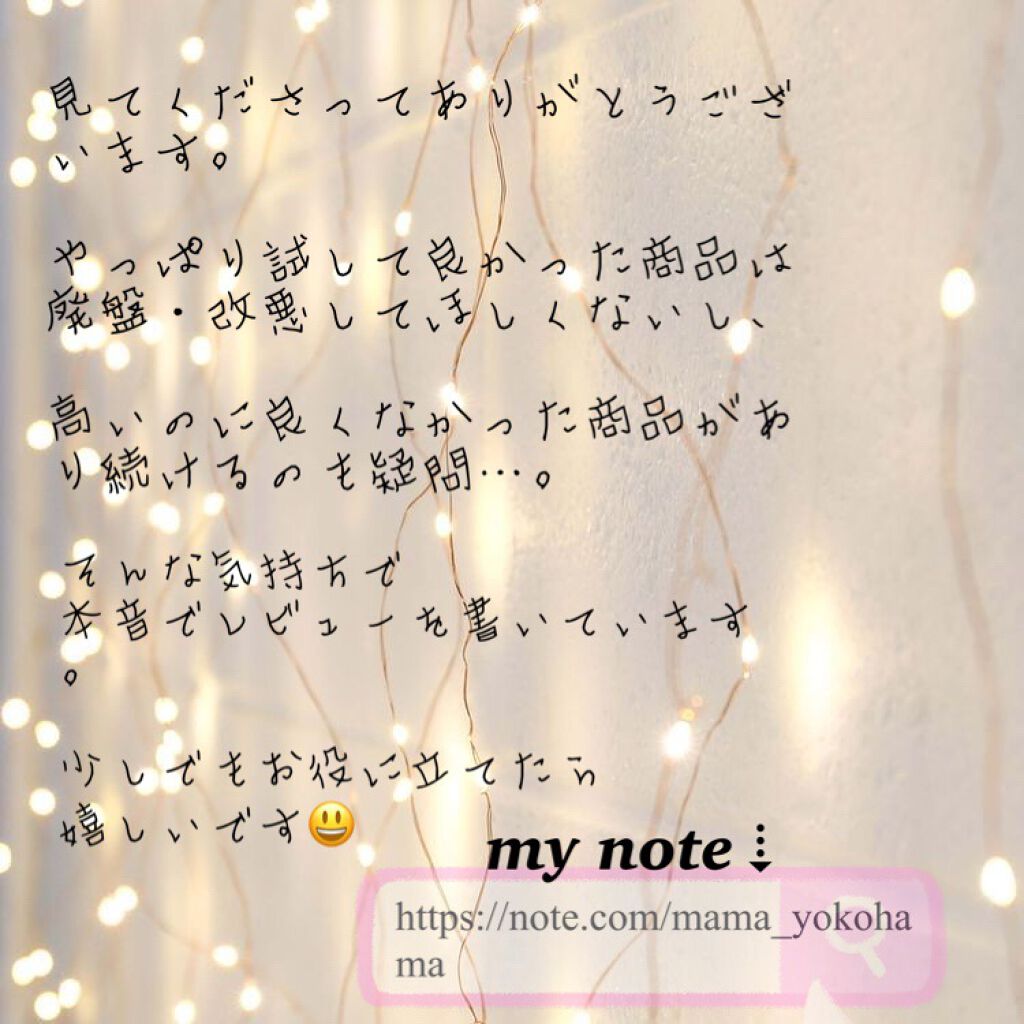 見てくださってありがとうござ
います。
やっぱり試して良かった商品は
廃盤・改悪してほしくないし、
高いのに良くなかった商品があ
り続けるのも疑問…。
そんな気持ちで
本音でレビューを書いています
。
少しでもお役に立てたら
嬉しいです😃
my note⇣
https://note.com/mama_yokoha
ma